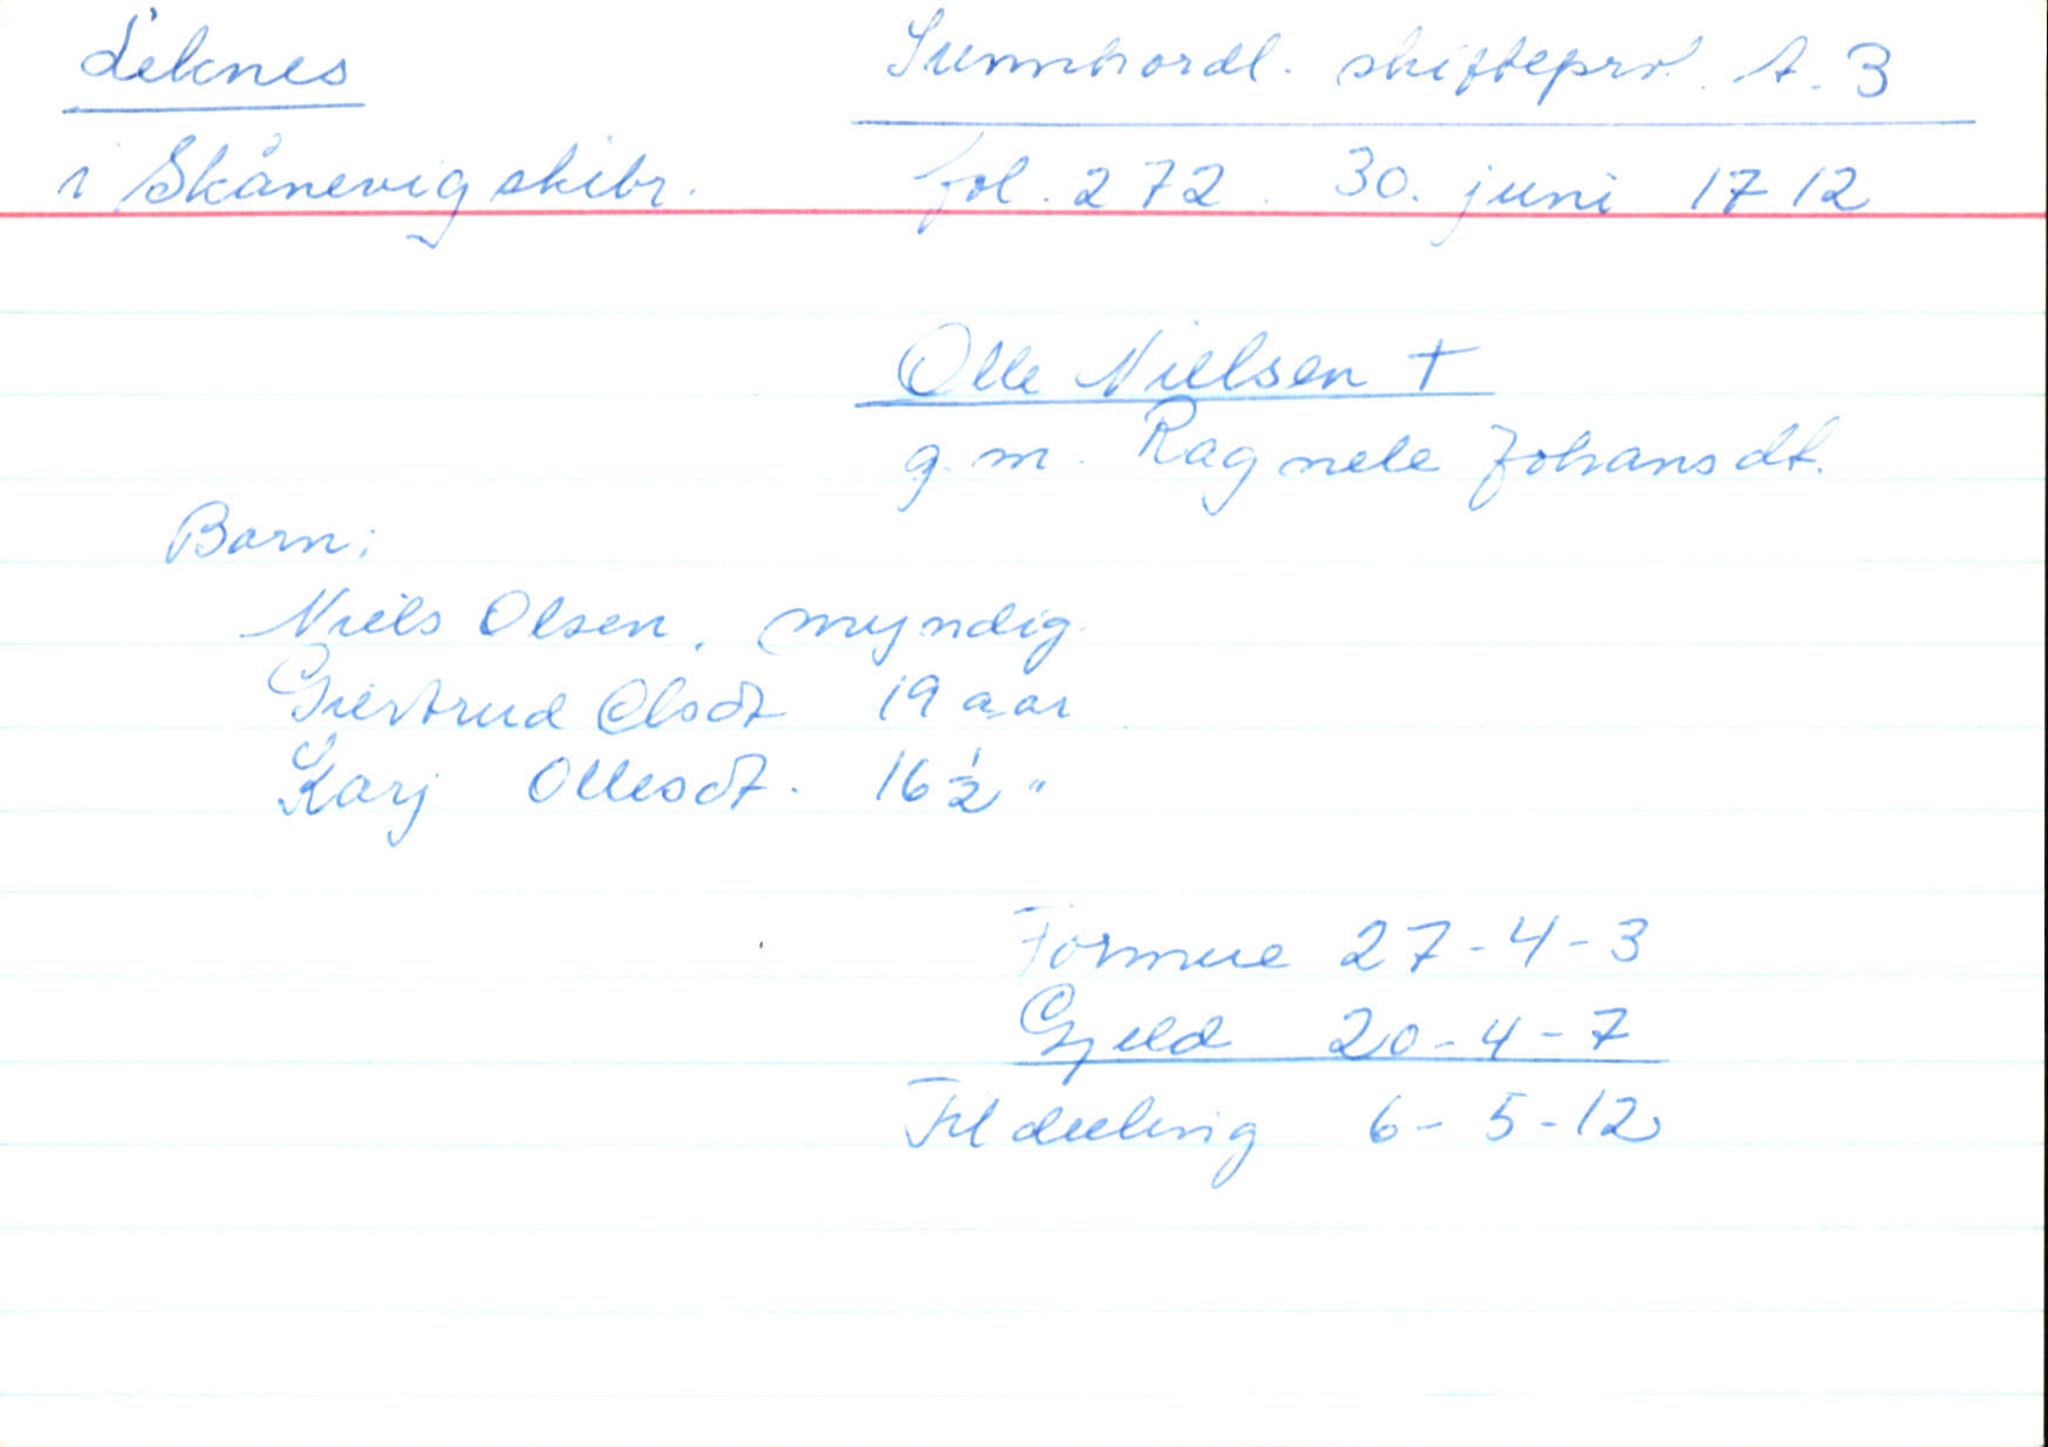 Leknes
i Skånevig skibr.
Sunnhordl. skifteprot. A. 3
fol. 272. 30. juni 1712
Olle Nielsen †
g. m. Ragnele Johansdt.
Barn:
Niels Olsen, myndig
Giertrud Olsdt 19 aar
Karj Ollesdt. 16 ½ "
Formue 27-4-3
Gjeld 20-4-7
Til deeling 6-5-12